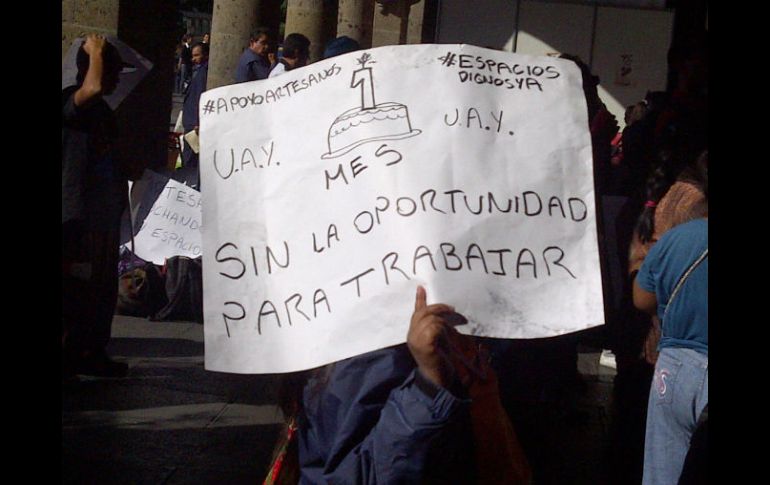 #APOYOARTESANOS
#ESPACIOS
DIGNOSYA
1
U.A.Y.
U.A.Y.
MES
SIN LA OPORTUNIDAD
PARA TRABAJAR
TESA
CHANDO
ESPACIO